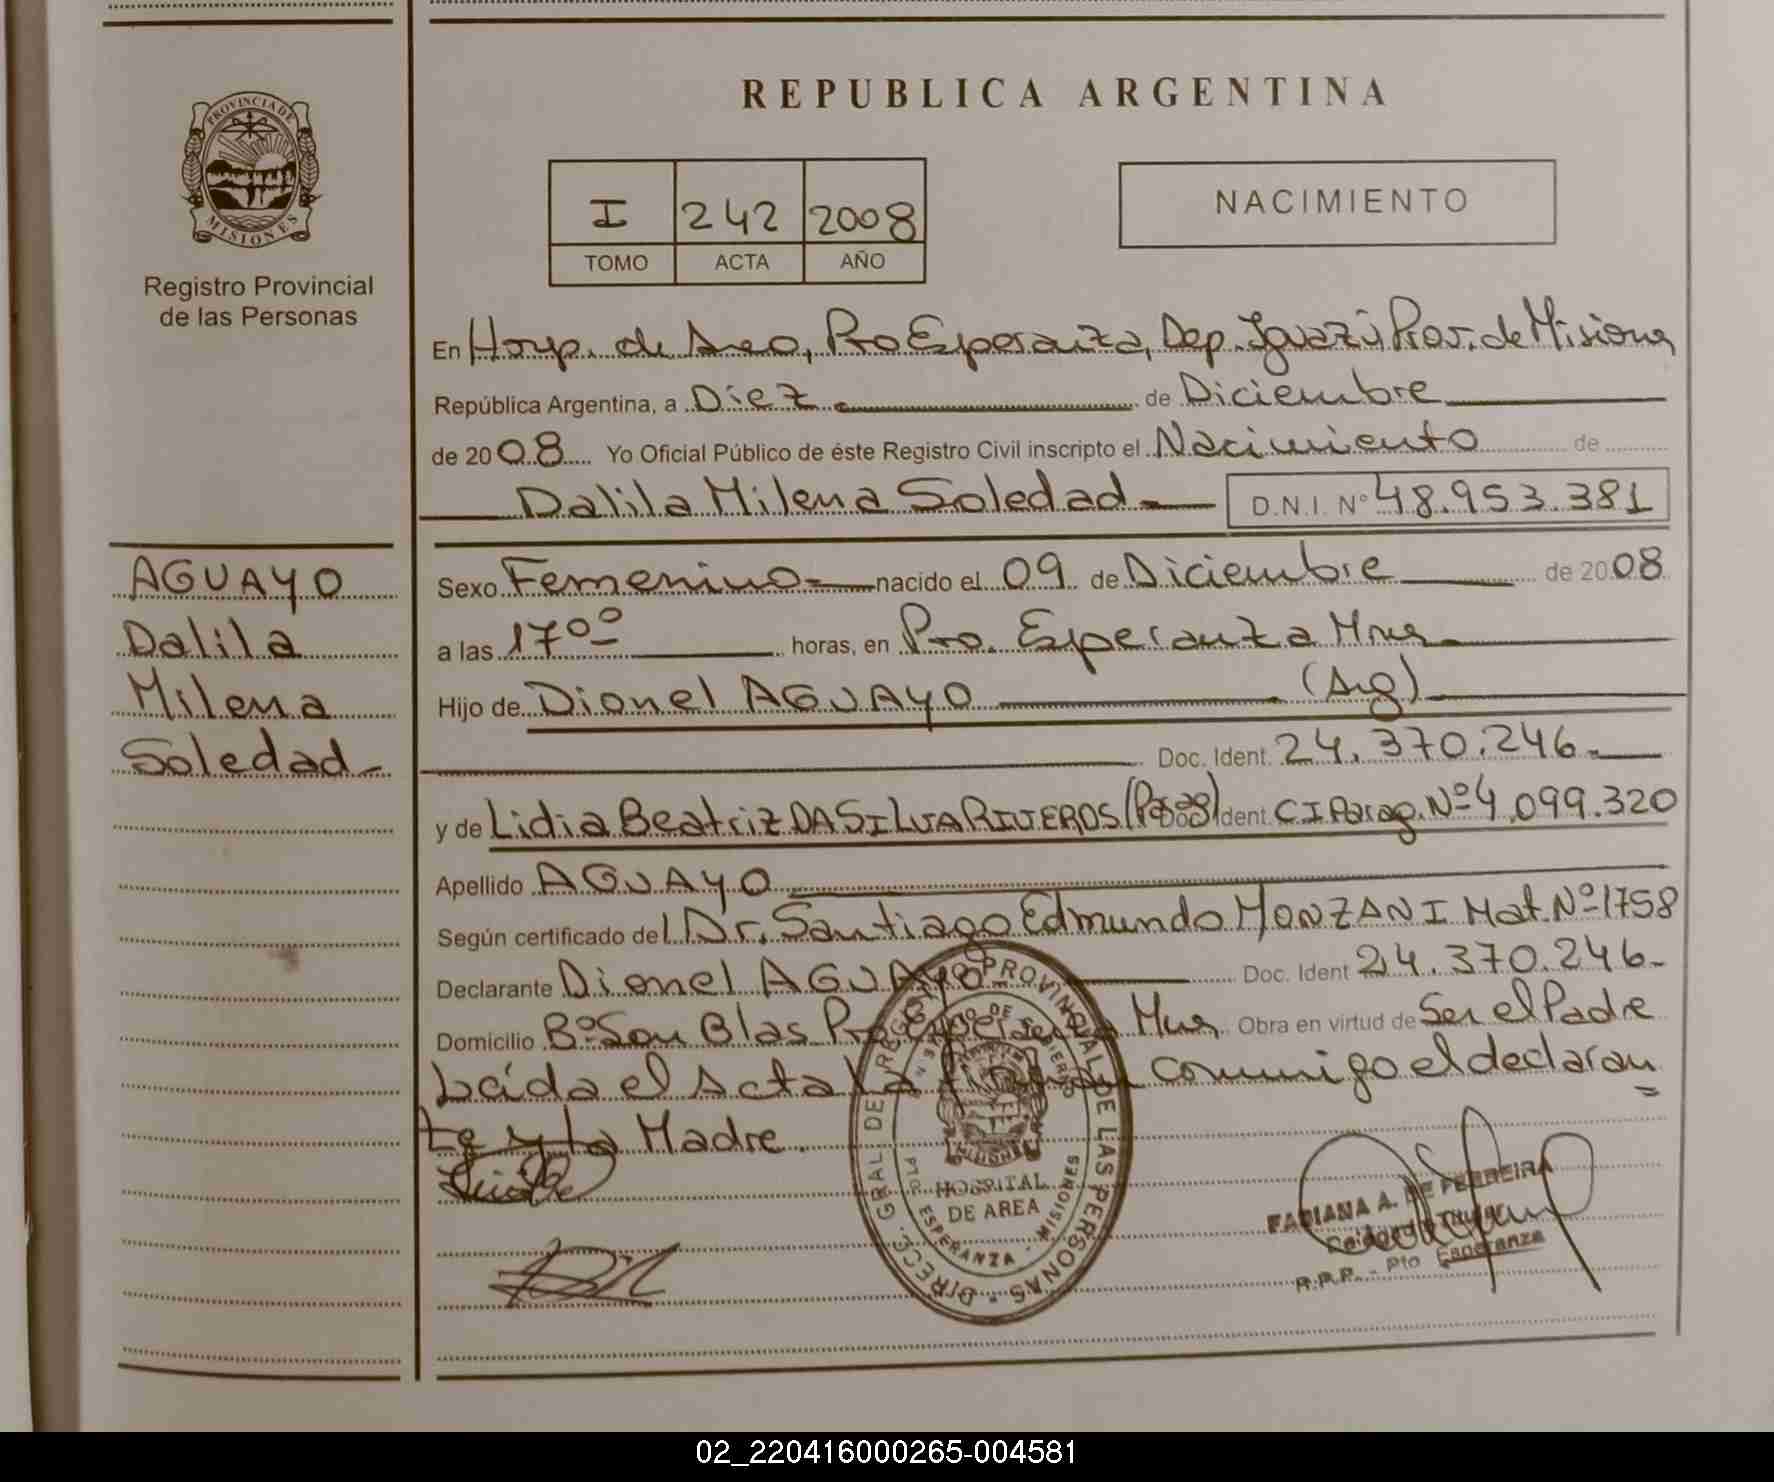 REPUBLICA ARGENTINA
PROVINCIA DE
MISIONES
Registro Provincial
de las Personas
I 242 2008
TOMO ACTA AÑO
NACIMIENTO
En Hosp. de Area, Pto Esperanza, Dep. Iguazú, Prov. de Misiones
República Argentina, a Diez de Diciembre
de 2008 Yo Oficial Público de éste Registro Civil inscripto el Nacimiento de
Dalila Milena Soledad D.N.I. Nº 48.953.381
AGUAYO
Dalila
Milena
Soledad
Sexo Femenino nacido el 09 de Diciembre de 2008
a las 17ºº horas, en Pto. Esperanza Mnes
Hijo de Dionel AGUAYO (Arg)
Doc. Ident. 24.370.246
y de Lidia Beatriz DA SILVA RIVEROS Ident. C I Parag. Nº 4.099.320
Apellido AGUAYO
Según certificado del Dr. Santiago Edmundo MONZANI Mat. Nº 1758
Declarante Dionel AGUAYO Doc. Ident 24.370.246
Domicilio Bº San Blas Pto Esperanza Mnes Obra en virtud de Ser el Padre
Leida el Acta la firman conmigo el declaran
te y la Madre.
DIRECC. GRAL DE REGISTRO PROVINCIAL DE LAS PERSONAS
MINISTERIO DE GOBIERNO
MISIONES
HOSPITAL
DE AREA
PTO. ESPERANZA - MISIONES
FABIANA A. DE FERREIRA
R.P.P. - Pto Esperanza
02_220416000265-004581